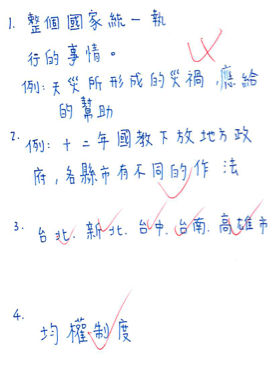 1. 整個國家統一執
行的事情。
例:天災所形成的災禍,應給
的幫助
2. 例:十二年國教下放地方政
府,各縣市有不同的作法
3. 台北.新北.台中.台南.高雄市
4. 均權制度